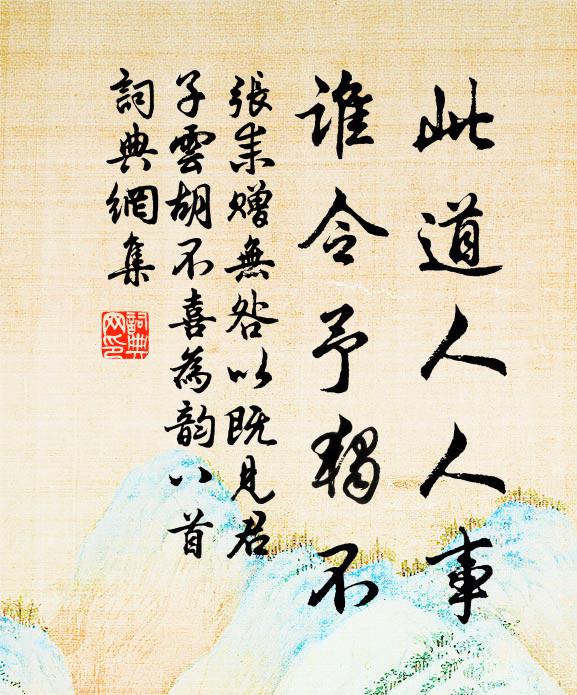 此道人人事
谁令予獨不
張耒赠無咎以既見君
子雲胡不喜為韵八首
詞典網集
詞典
网印